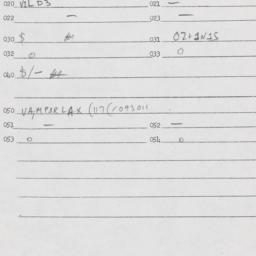 020 VILD3 021 —
022 — 023 —
030 $ 031 02+1N1S
032 0 033 0
040 $/—
050 VAMPERLAX (117(1093011
051 — 052 —
053 0 054 0